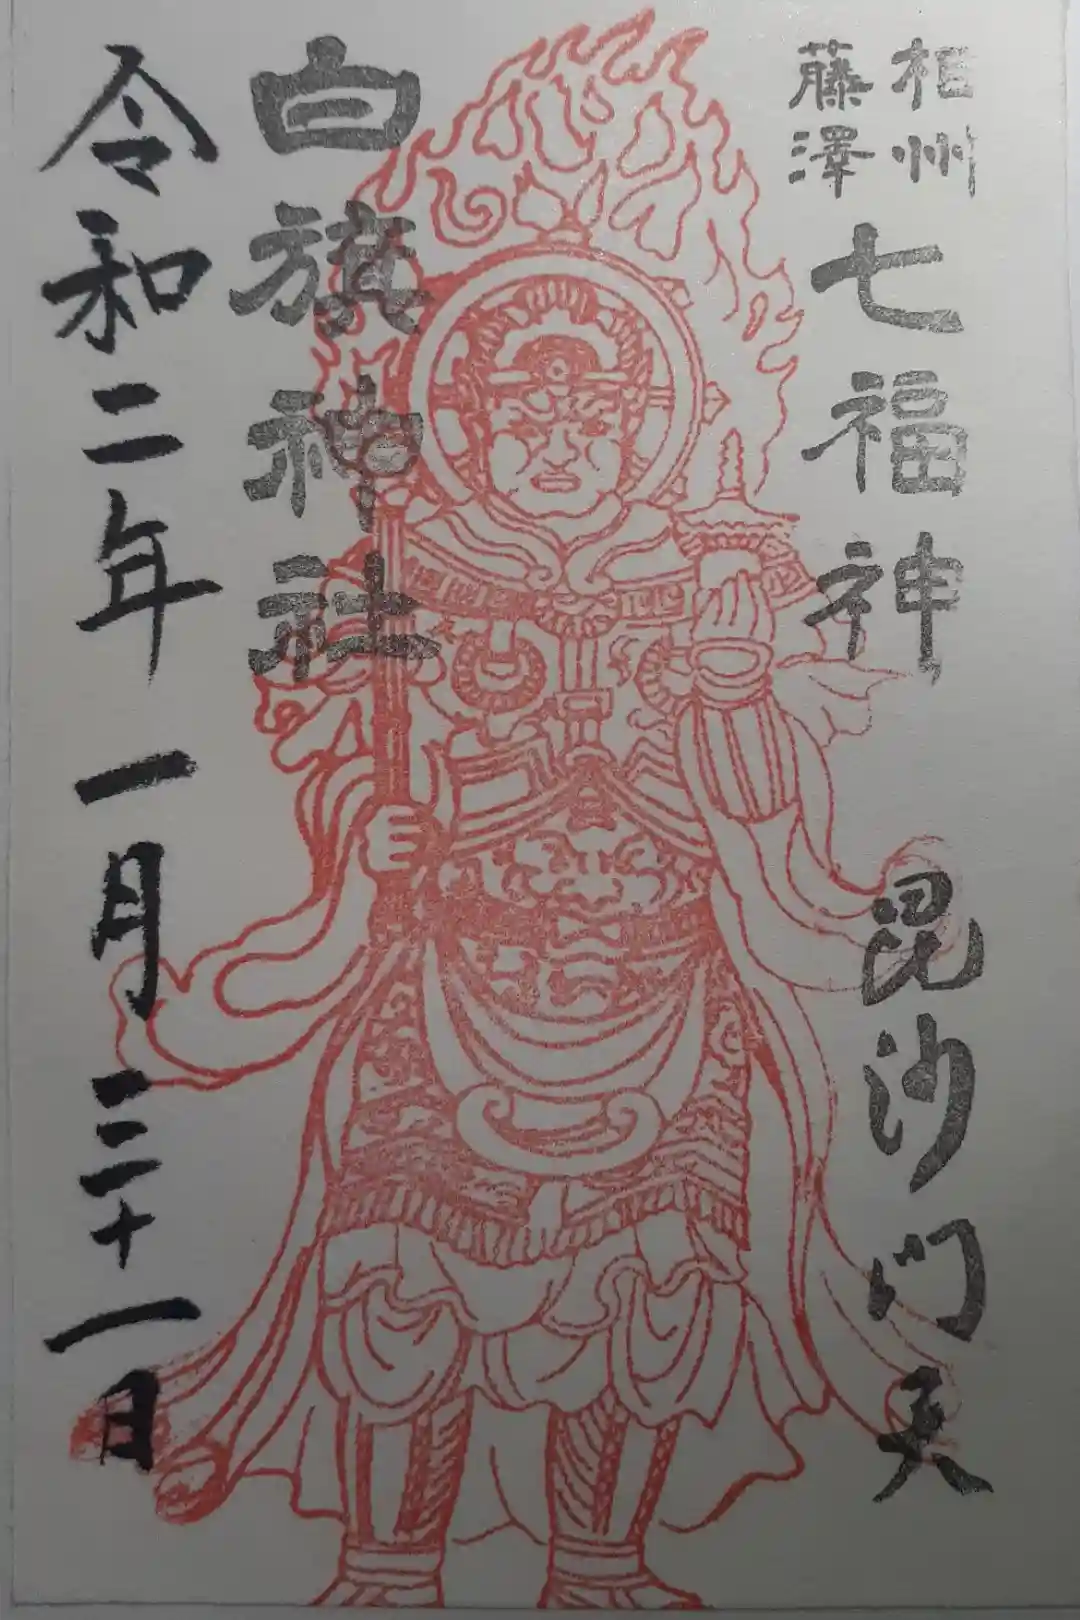 相州
藤澤
七福神 毘沙門天
白旗神社
令和二年 一月 三十一日